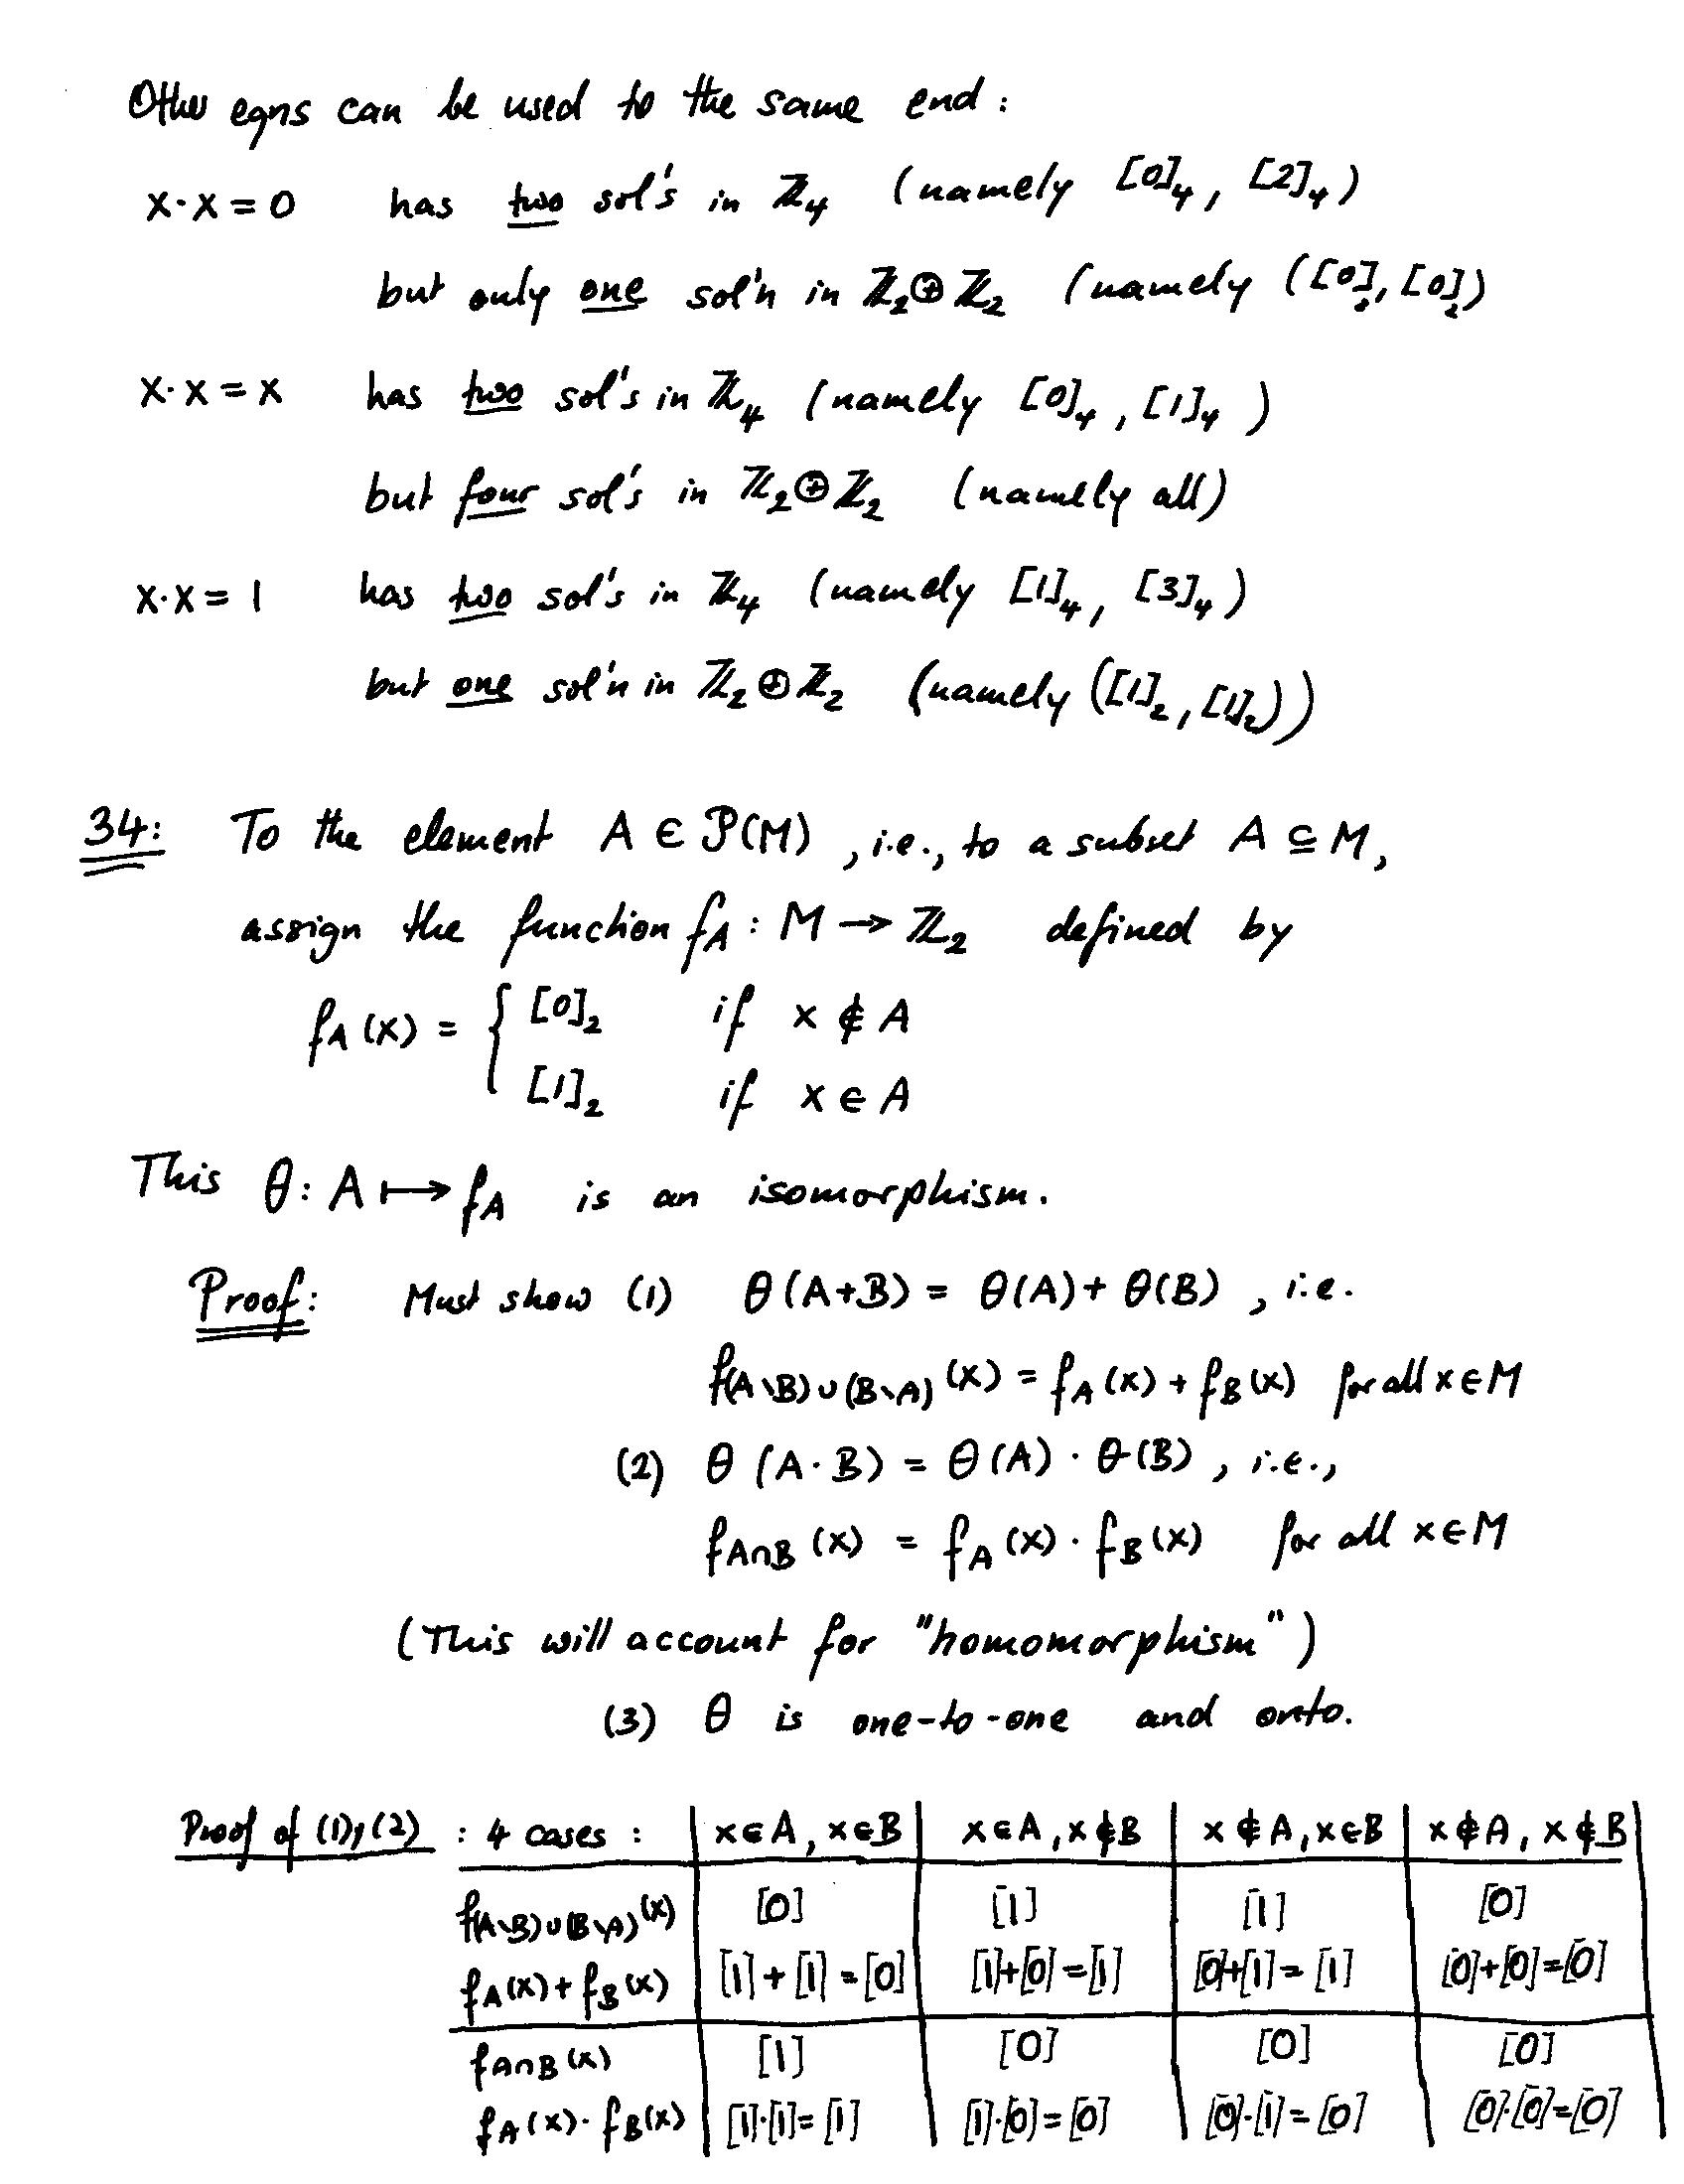 Other eqns can be used to the same end:
x·x = 0 has two sol's in ℤ₄ (namely [0]₄, [2]₄)
but only one sol'n in ℤ₂⊕ℤ₂ (namely ([0]₂, [0]₂)
x·x = x has two sol's in ℤ₄ (namely [0]₄, [1]₄)
but four sol's in ℤ₂⊕ℤ₂ (namely all)
x·x = 1 has two sol's in ℤ₄ (namely [1]₄, [3]₄)
but one sol'n in ℤ₂⊕ℤ₂ (namely ([1]₂, [1]₂))
34: To the element A ∈ 𝒫(M), i.e., to a subset A ⊆ M,
assign the function f_A : M → ℤ₂ defined by
f_A(x) = { [0]₂ if x ∉ A
[1]₂ if x ∈ A
This θ: A ↦ f_A is an isomorphism.
Proof: Must show (1) θ(A+B) = θ(A) + θ(B), i.e.
f_(A∖B)∪(B∖A) (x) = f_A(x) + f_B(x) for all x∈M
(2) θ(A·B) = θ(A) · θ(B), i.e.,
f_A∩B (x) = f_A(x) · f_B(x) for all x∈M
(This will account for "homomorphism")
(3) θ is one-to-one and onto.
Proof of (1), (2) : 4 cases : | x∈A, x∈B | x∈A, x∉B | x∉A, x∈B | x∉A, x∉B |
f_(A∖B)∪(B∖A) (x) | [0] | [1] | [1] | [0]
f_A(x) + f_B(x) | [1]+[1]=[0] | [1]+[0]=[1] | [0]+[1]=[1] | [0]+[0]=[0]
f_A∩B (x) | [1] | [0] | [0] | [0]
f_A(x)·f_B(x) | [1]·[1]=[1] | [1]·[0]=[0] | [0]·[1]=[0] | [0]·[0]=[0]